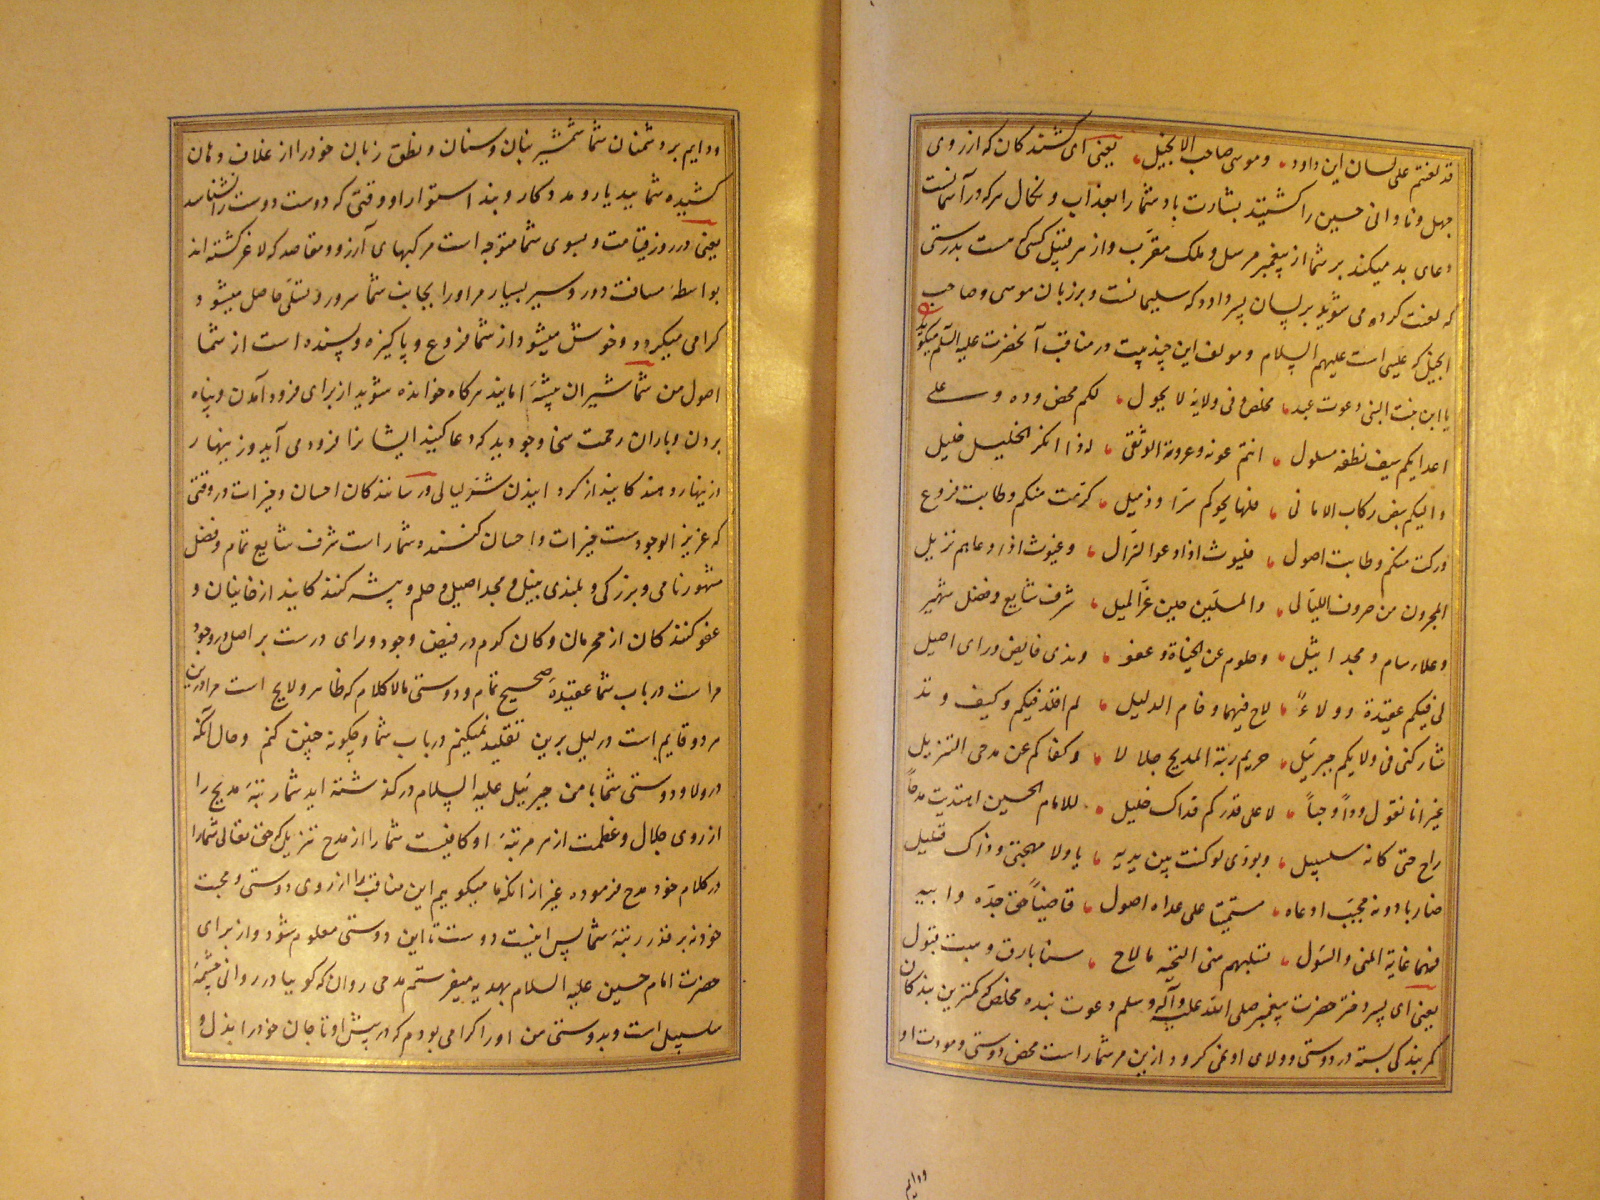 قد لعنتم علی لسان ابن داود وموسی صاحب الانجیل یعنی ای کشندکان که از روی
جهل و نادانی حسین را کشتید بشارت باد شما را بعذاب و نکال هرکه در آسمانست
دعای بد میکند بر شما از پیغمبر مرسل و ملک مقرب و از هر قبیل کسی هست بدرستی
که لعنت کرده می شوید بر لسان پسر داود که سلیمانست و بر زبان موسی و صاحب
انجیل که عیسی است علیهم السلام و مولف این چند بیت در مناقب آنحضرت علیه السلم میکوید
یا ابن بنت النبی دعوت عبد مخلص فی ولایة لا یحول لکم محض وده و علی
اعدایکم سیف نطقه مسلول انتم عونه و عروته الوثقی اذا انکر الخلیل خلیل
والیکم ینضی رکاب الامانی فلها نحوکم سرا و ذمیل کرمت منکم وطابت فروع
وزکت منکم وطابت اصول فلیوث اذا دعوا النزال وغیوث اذا دعاهم نزیل
المجرون من صروف اللیالی والمنیلین حین عز المنیل شرف شایع وفضل شهیر
وعلاء سام ومجد اثیل وحلوم عن الجناة وعفو وندی فایض ورای اصیل
لی فیکم عقیدة وولاء لاح فیهما وقام الدلیل لم اقلد فیکم وکیف وقد
شارکنی فی ولایکم جبرئیل جزتم رتبة المدیح جلالا وکفاکم عن مدحی التنزیل
غیر انا نقول ودا وحبا لا علی قدرکم فذاک جلیل للامام الحسین اهدیت مدحا
راح حتی کانه سلسبیل وبودی لو کنت بین یدیه باذلا مهجتی وذاک قلیل
ضاربا دونه مجیب ادعاه مستمیتا علی عداه اصول قاضیا حق جده وابیه
فهما غایة المنی والسول فعلیهم منی التحیه ما لاح سنا بارق وهبت قبول
یعنی ای پسر دختر حضرت پیغمبر صلی الله علیه وآله وسلم دعوت بنده مخلص که کمترین بندکان
کمر بندکی بسته در دوستی و ولای او نمی کردد از این مر شما راست محض دوستی و مودت او
ودایم
ودایم بر دشمنان شما شمشیر بنان و سنان و نطق زبان خود را از غلاف دهان
کشیده شمایید یار و مددکار و بند استوار او وقتی که دوست دوست را نشناسد
یعنی در روز قیامت و بسوی شما متوجه است مرکبهای آرزو و مقاصد که لاغر کشته اند
بواسطه مسافت دور و سیر بسیار مر او را بجانب شما سرور و تسلی حاصل میشود
کرامی میکردد و خوش میشود از شما فروع و پاکیزه و پسنده است از شما
اصول من شما شیران بیشه اماید هرکاه خوانده شوید از برای فرود آمدن و پناه
بردن و باران رحمت سخا و جودید که دعا کنید ایشانرا فرود می آید و زینهار
و زینهار دهندکانید از کردانیدن شر لیالی و رسانندکان احسان و خیرات در وقتی
که عزیز الوجودست خیرات و احسان کنسنده شما راست شرف شایع تمام و فضل
مشهور نامی و بزرکی و بلندی نبیل و مجد اصیل و حلم و پیشه کنندکانید از جانیان و
عفو کنندکان از مجرمان و کان کرم در فیض وجود و رای درست بر اصل در وجود
مراست در باب شما عقیدهٔ صحیح تمام و دوستی مالاکلام که ظاهر و لایح است مرا در این
هر دو قایم است دلیل برین تقلید نمیکنیم در باب شما و چکونه چنین کنم و حال آنکه
در ولا و دوستی شما با من جبرئیل علیه السلام در کذشته اید شما رتبهٔ مدیح را
از روی جلال و عظمت از هر مرتبه او کافیست شما را از مدح تنزیل که حق تعالی شما را
در کلام خود مدح فرموده غیر از آنکه ما میکوییم این مناقب را از روی دوستی و محبت
خود نه بر قدر رتبهٔ شما پس اینست دوست تا این دوستی معلوم شود و از برای
حضرت امام حسین علیه السلام بهدیه میفرستم مدحی روان که کویا در روانی چشمهٔ
سلسبیل است و بدوستی من او را کرامی بودم که در پیش او تا جان خود را بذل و